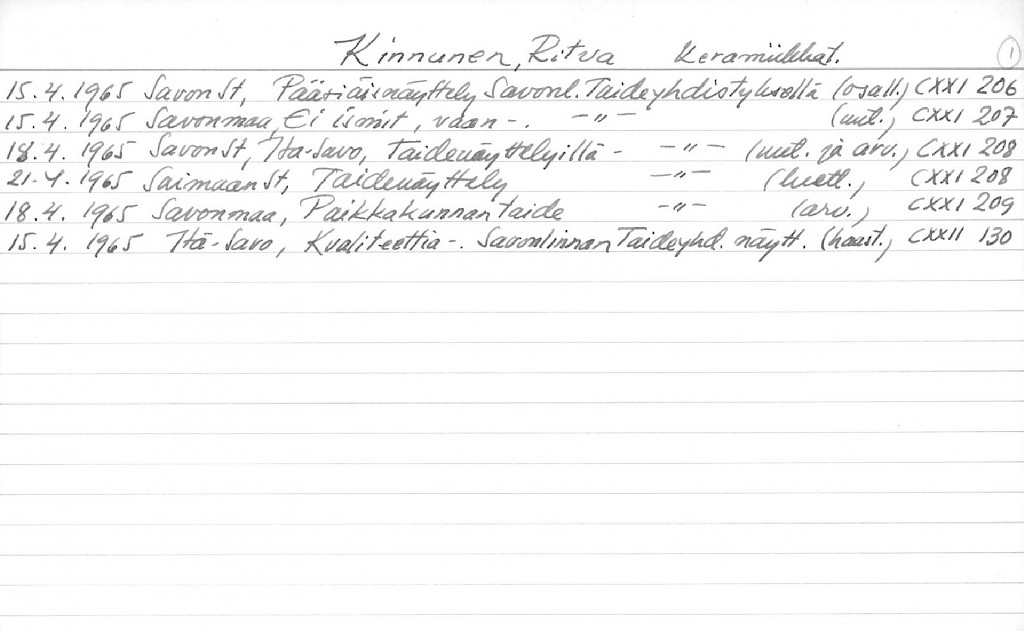 Kinnunen, Ritva Keramiikkat. 1
15.4.1965 Savon St, Pääsiäisnäyttely Savonl. Taideyhdistyksellä (osall.) CXXI 206
15.4.1965 Savonmaa, Ei ismit, vaan -. -"- (uut.) CXXI 207
18.4.1965 Savon St, Itä-Savo, Taidenäyttelyillä - -"- (uut. ja arv.) CXXI 208
21.4.1965 Saimaan St, Taidenäyttely -"- (luett.) CXXI 208
18.4.1965 Savonmaa, Paikkakunnan taide -"- (arv.) CXXI 209
15.4.1965 Itä-Savo, Kvaliteettia -. Savonlinnan Taideyhd. näytt. (haast.) CXXII 130